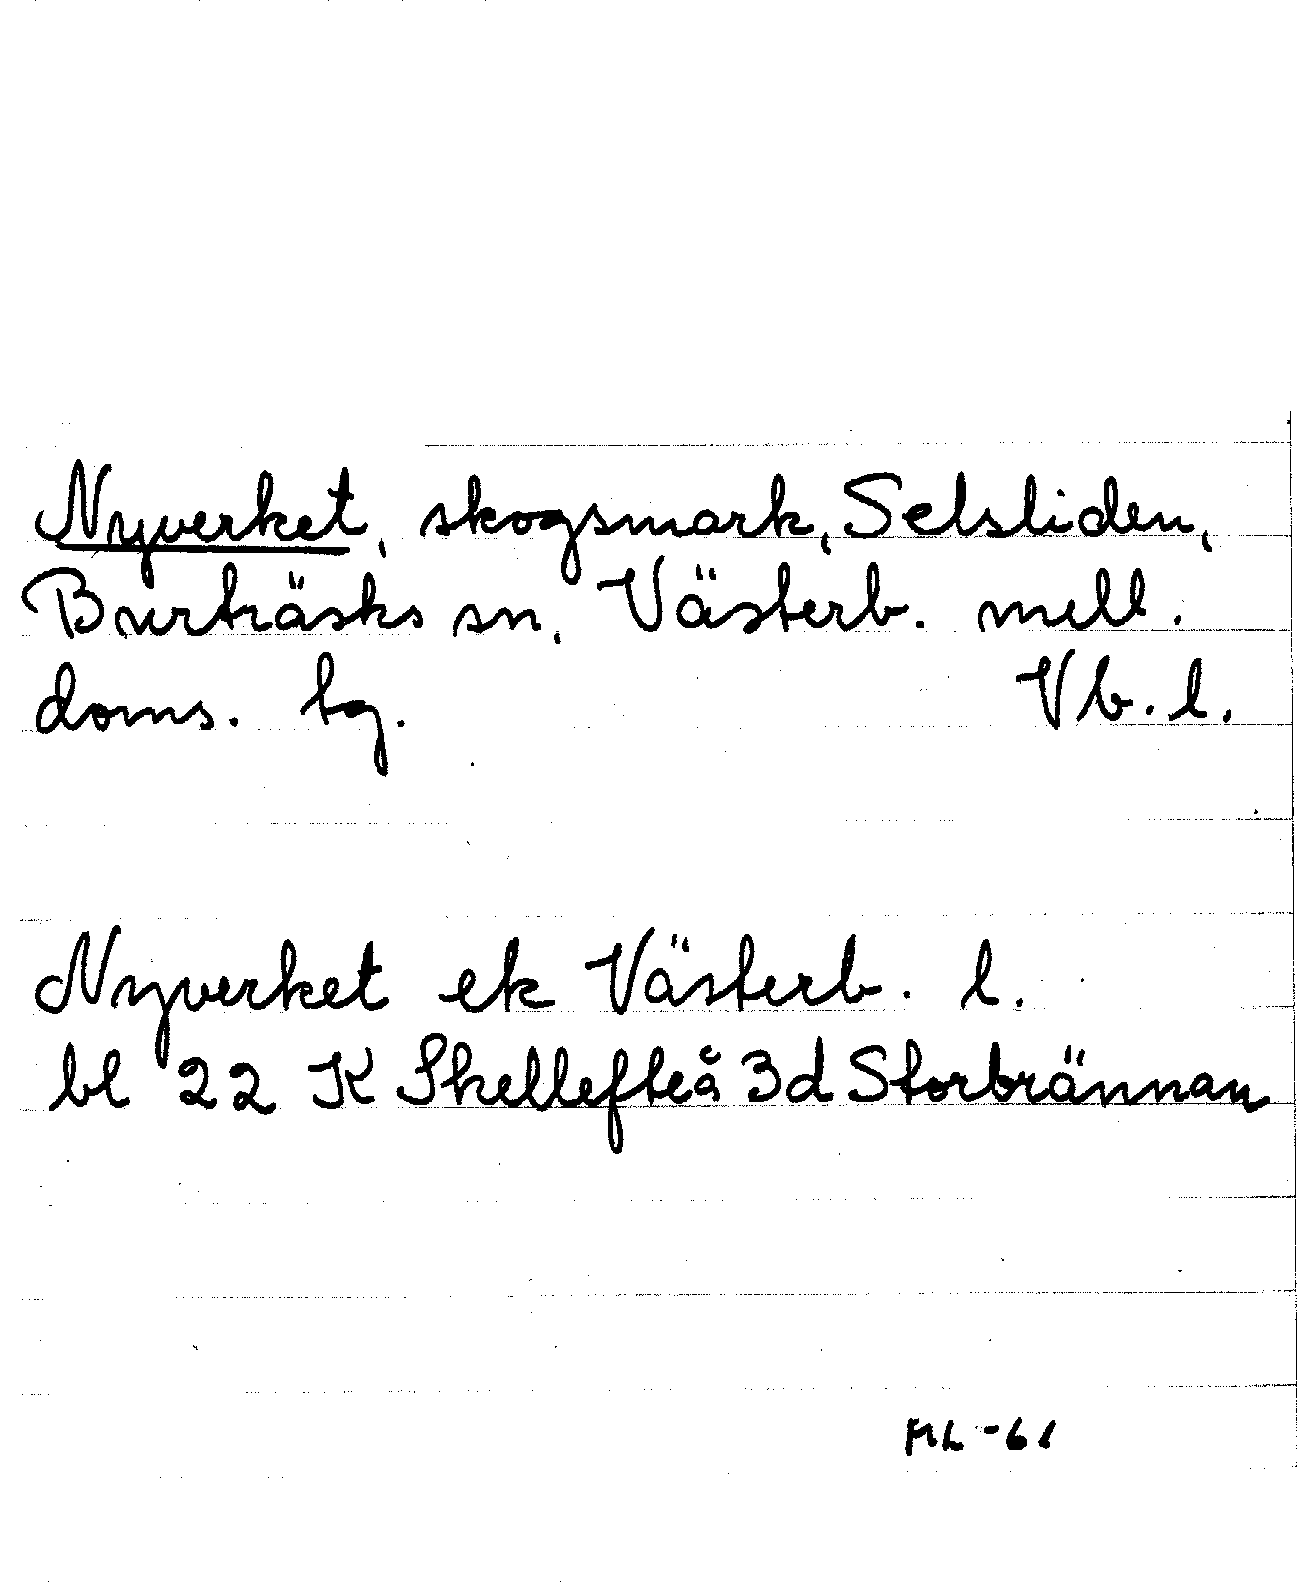 Nyverket, skogsmark, Selsliden,
Burträsks sn, Västerb. mell.
doms. bg. Vb. l.
Nyverket ek Västerb. l.
bl 22 K Skellefteå 3d Storbrännan
ML -61